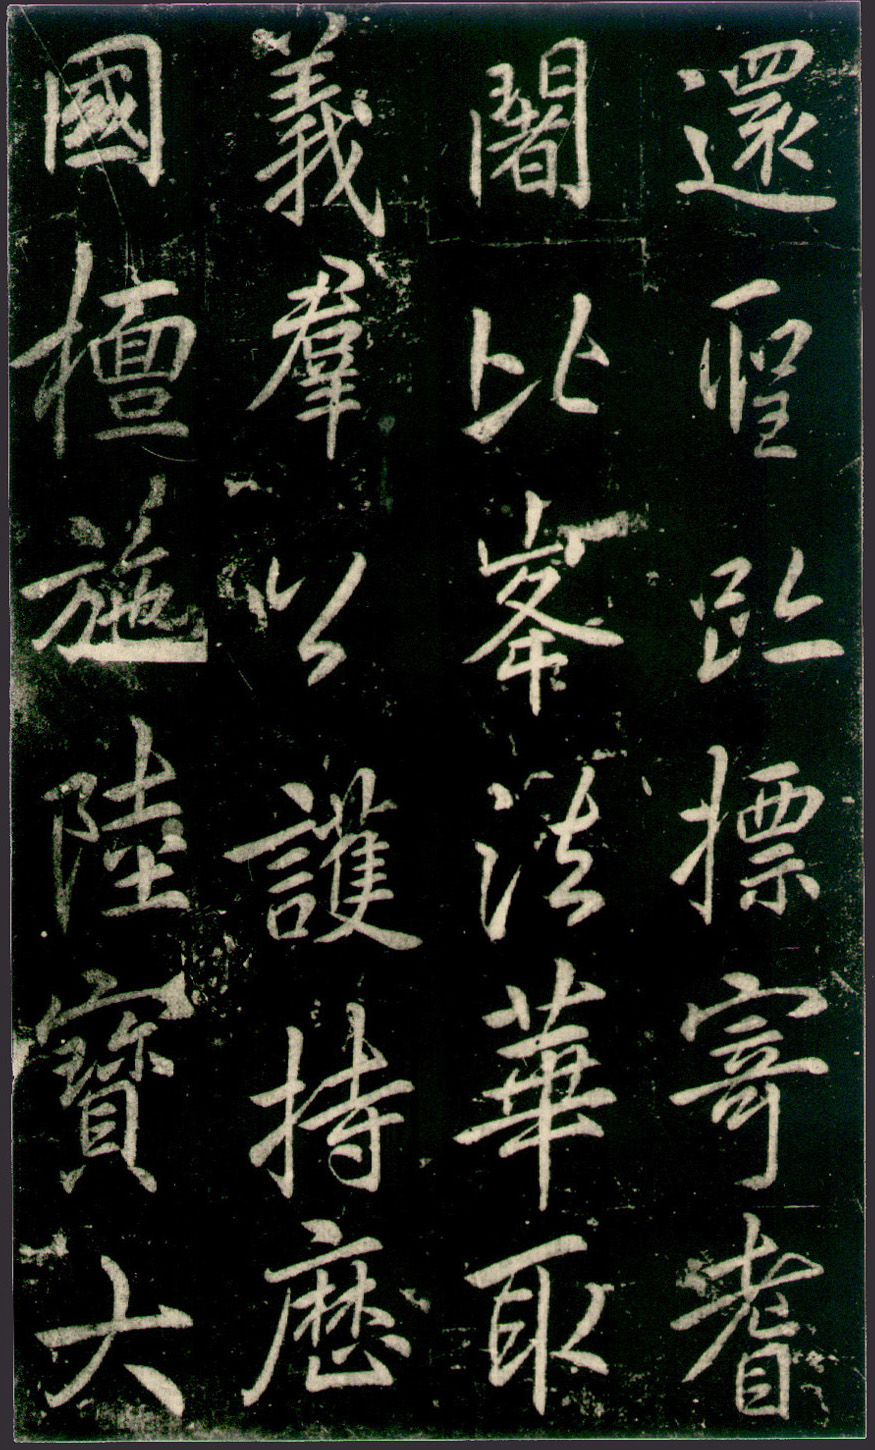 還聖趾摽寄耆
闍比峯法華取
義羣以護持歷
國檀施陸寶大